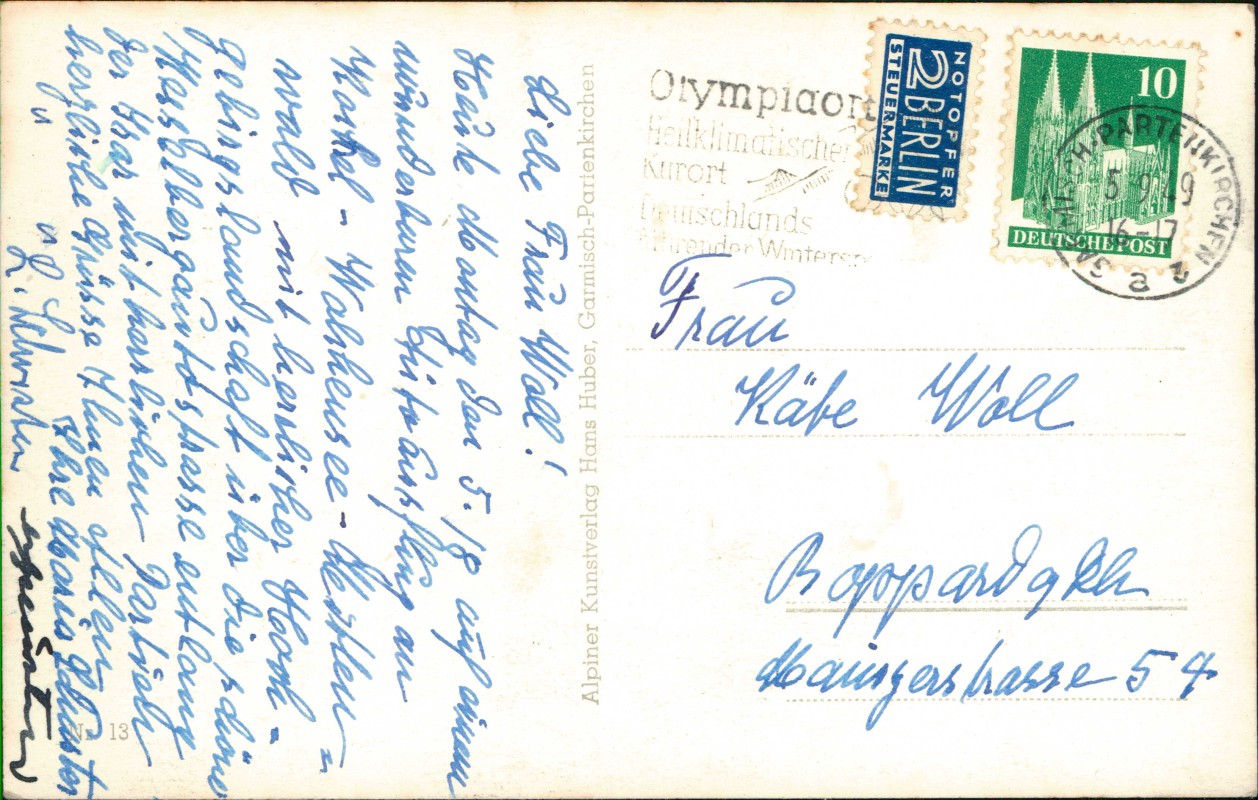 Liebe Frau Woll!
Heute Montag den 5./8 auf einem
wunderbaren Autoausflug an
Kochel - Walchensee -
wald mit herrlicher Hoch =
gebirgslandschaft über die schöne
entlang
der Isar mit herrlichen Partien
herzliche Grüsse Ihnen allen
Ihre Maria
u
u
Nr. 13
Alpiner Kunstverlag Hans Huber, Garmisch-Partenkirchen
Olympiaort
Heilklimatischer
Kurort
Deutschlands
führender Wintersp
NOTOPFER
2 BERLIN
STEUERMARKE
10
DEUTSCHE POST
GARMISCH-PARTENKIRCHEN
5.9.49
16-17
a 2
Frau
Käte Woll
Boppard a/Rh
Mainzerstrasse 54